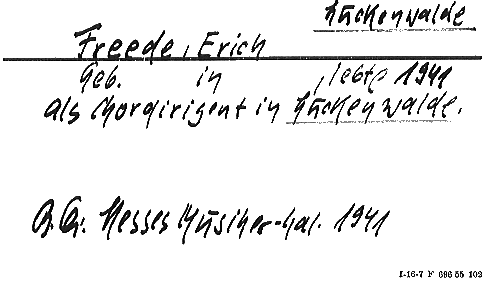 Luckenwalde
Freede, Erich
Geb. in , lebte 1941
als Chordirigent in Luckenwalde.
Hesses Musiker-Kal. 1941
I-16-7 F 686 55 102